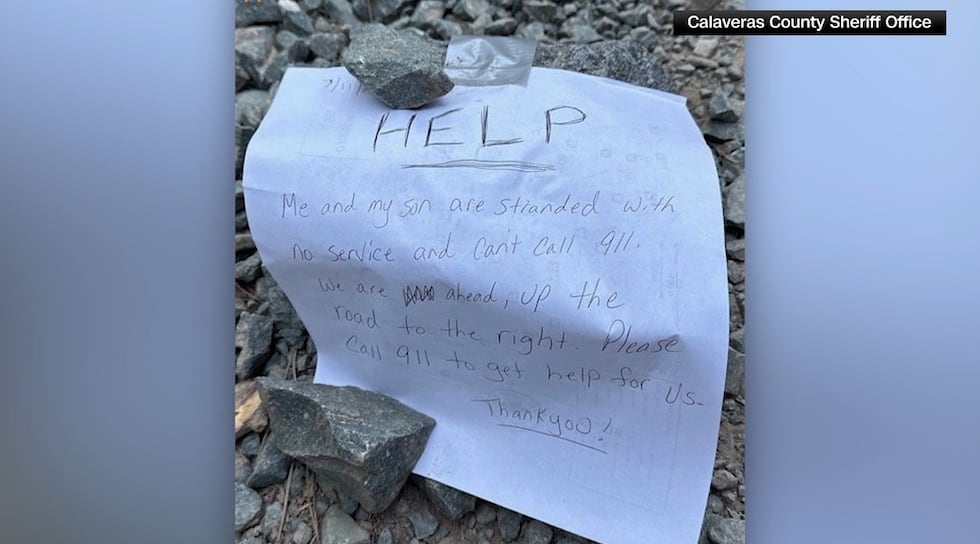 Calaveras County Sheriff Office
7/11/
HELP
Me and my son are stranded with
no service and can't call 911.
We are ahead, up the
road to the right. Please
Call 911 to get help for Us.
Thankyou!